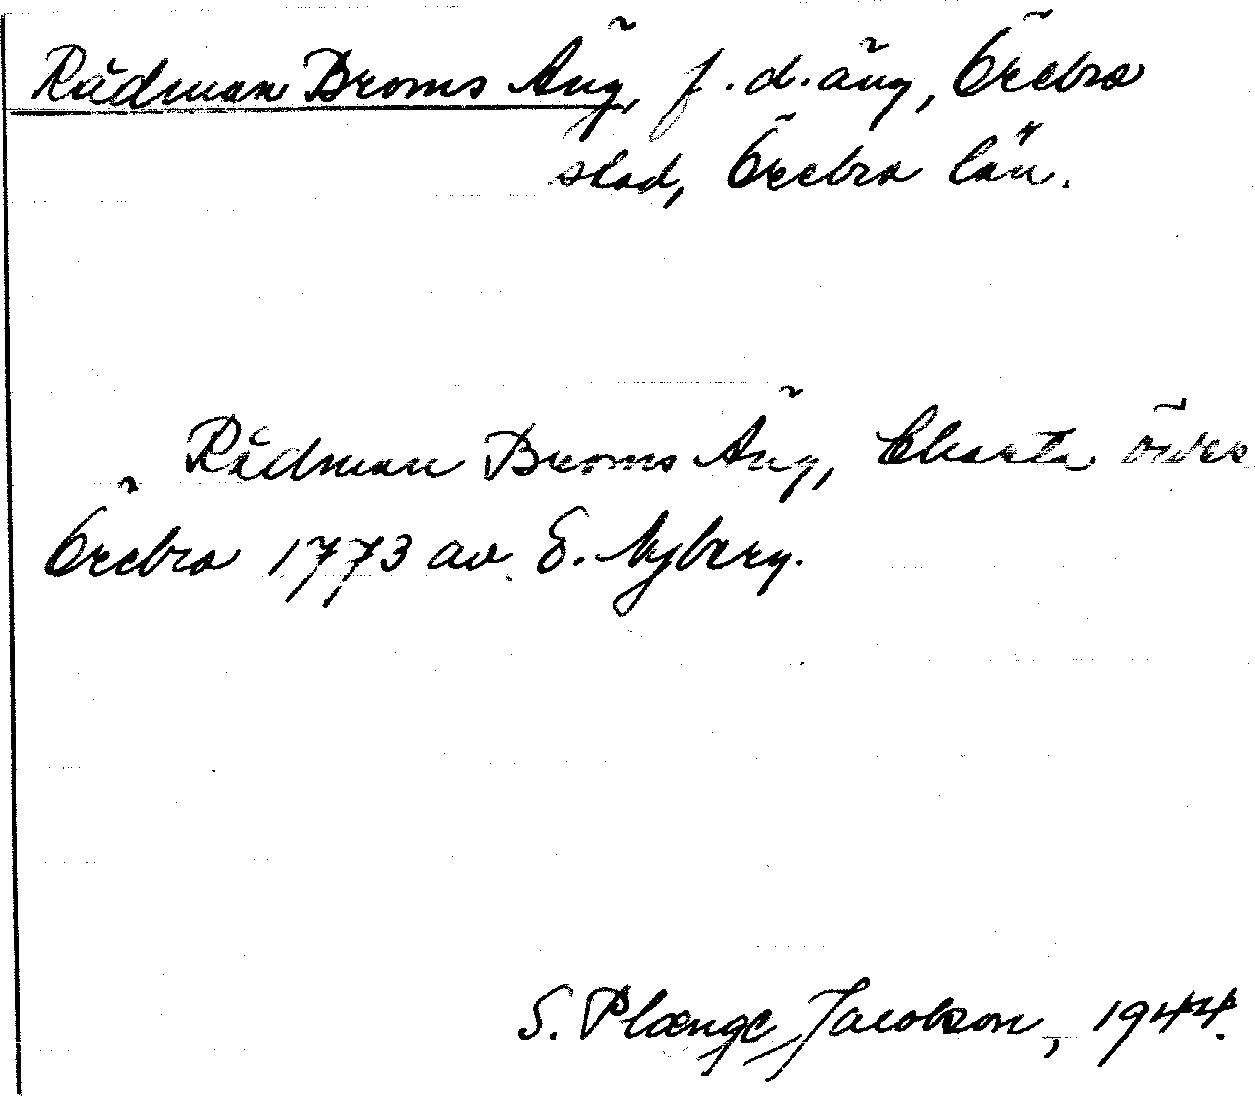 Rådman Broms Äng, f.d. äng, Örebro
stad, Örebro län.
Rådman Broms Äng, Charta öfver
Örebro 1773 av E. Nyberg.
S. Plænge Jacobson, 1944.